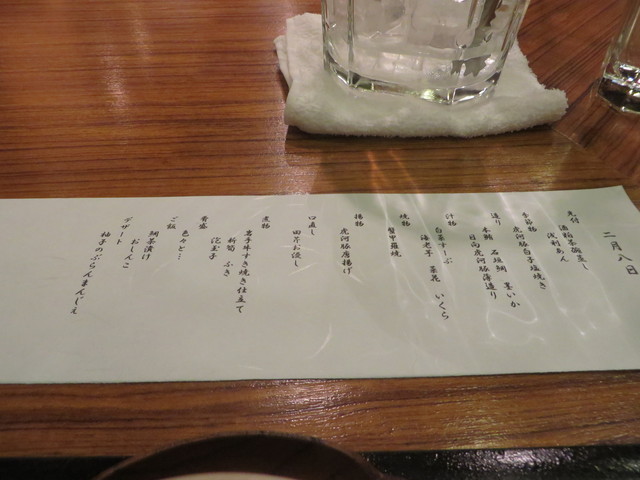 二月八日
先付
酒粕茶碗蒸し
浅利あん
季節物
虎河豚白子塩焼き
造り
本鮪 石垣鯛 墨いか
目向虎河豚薄造り
汁物
白菜すーぷ
海老芋 菜花 いくら
焼物
蟹甲羅焼
揚物
虎河豚唐揚げ
口直し
田芹お浸し
煮物
岩手牛すき焼き仕立て
新筍 ふき
泡玉子
肴盛
色々と…
ご飯
鯛茶漬け
おしんこ
デザート
柚子のぶらんまんじぇ